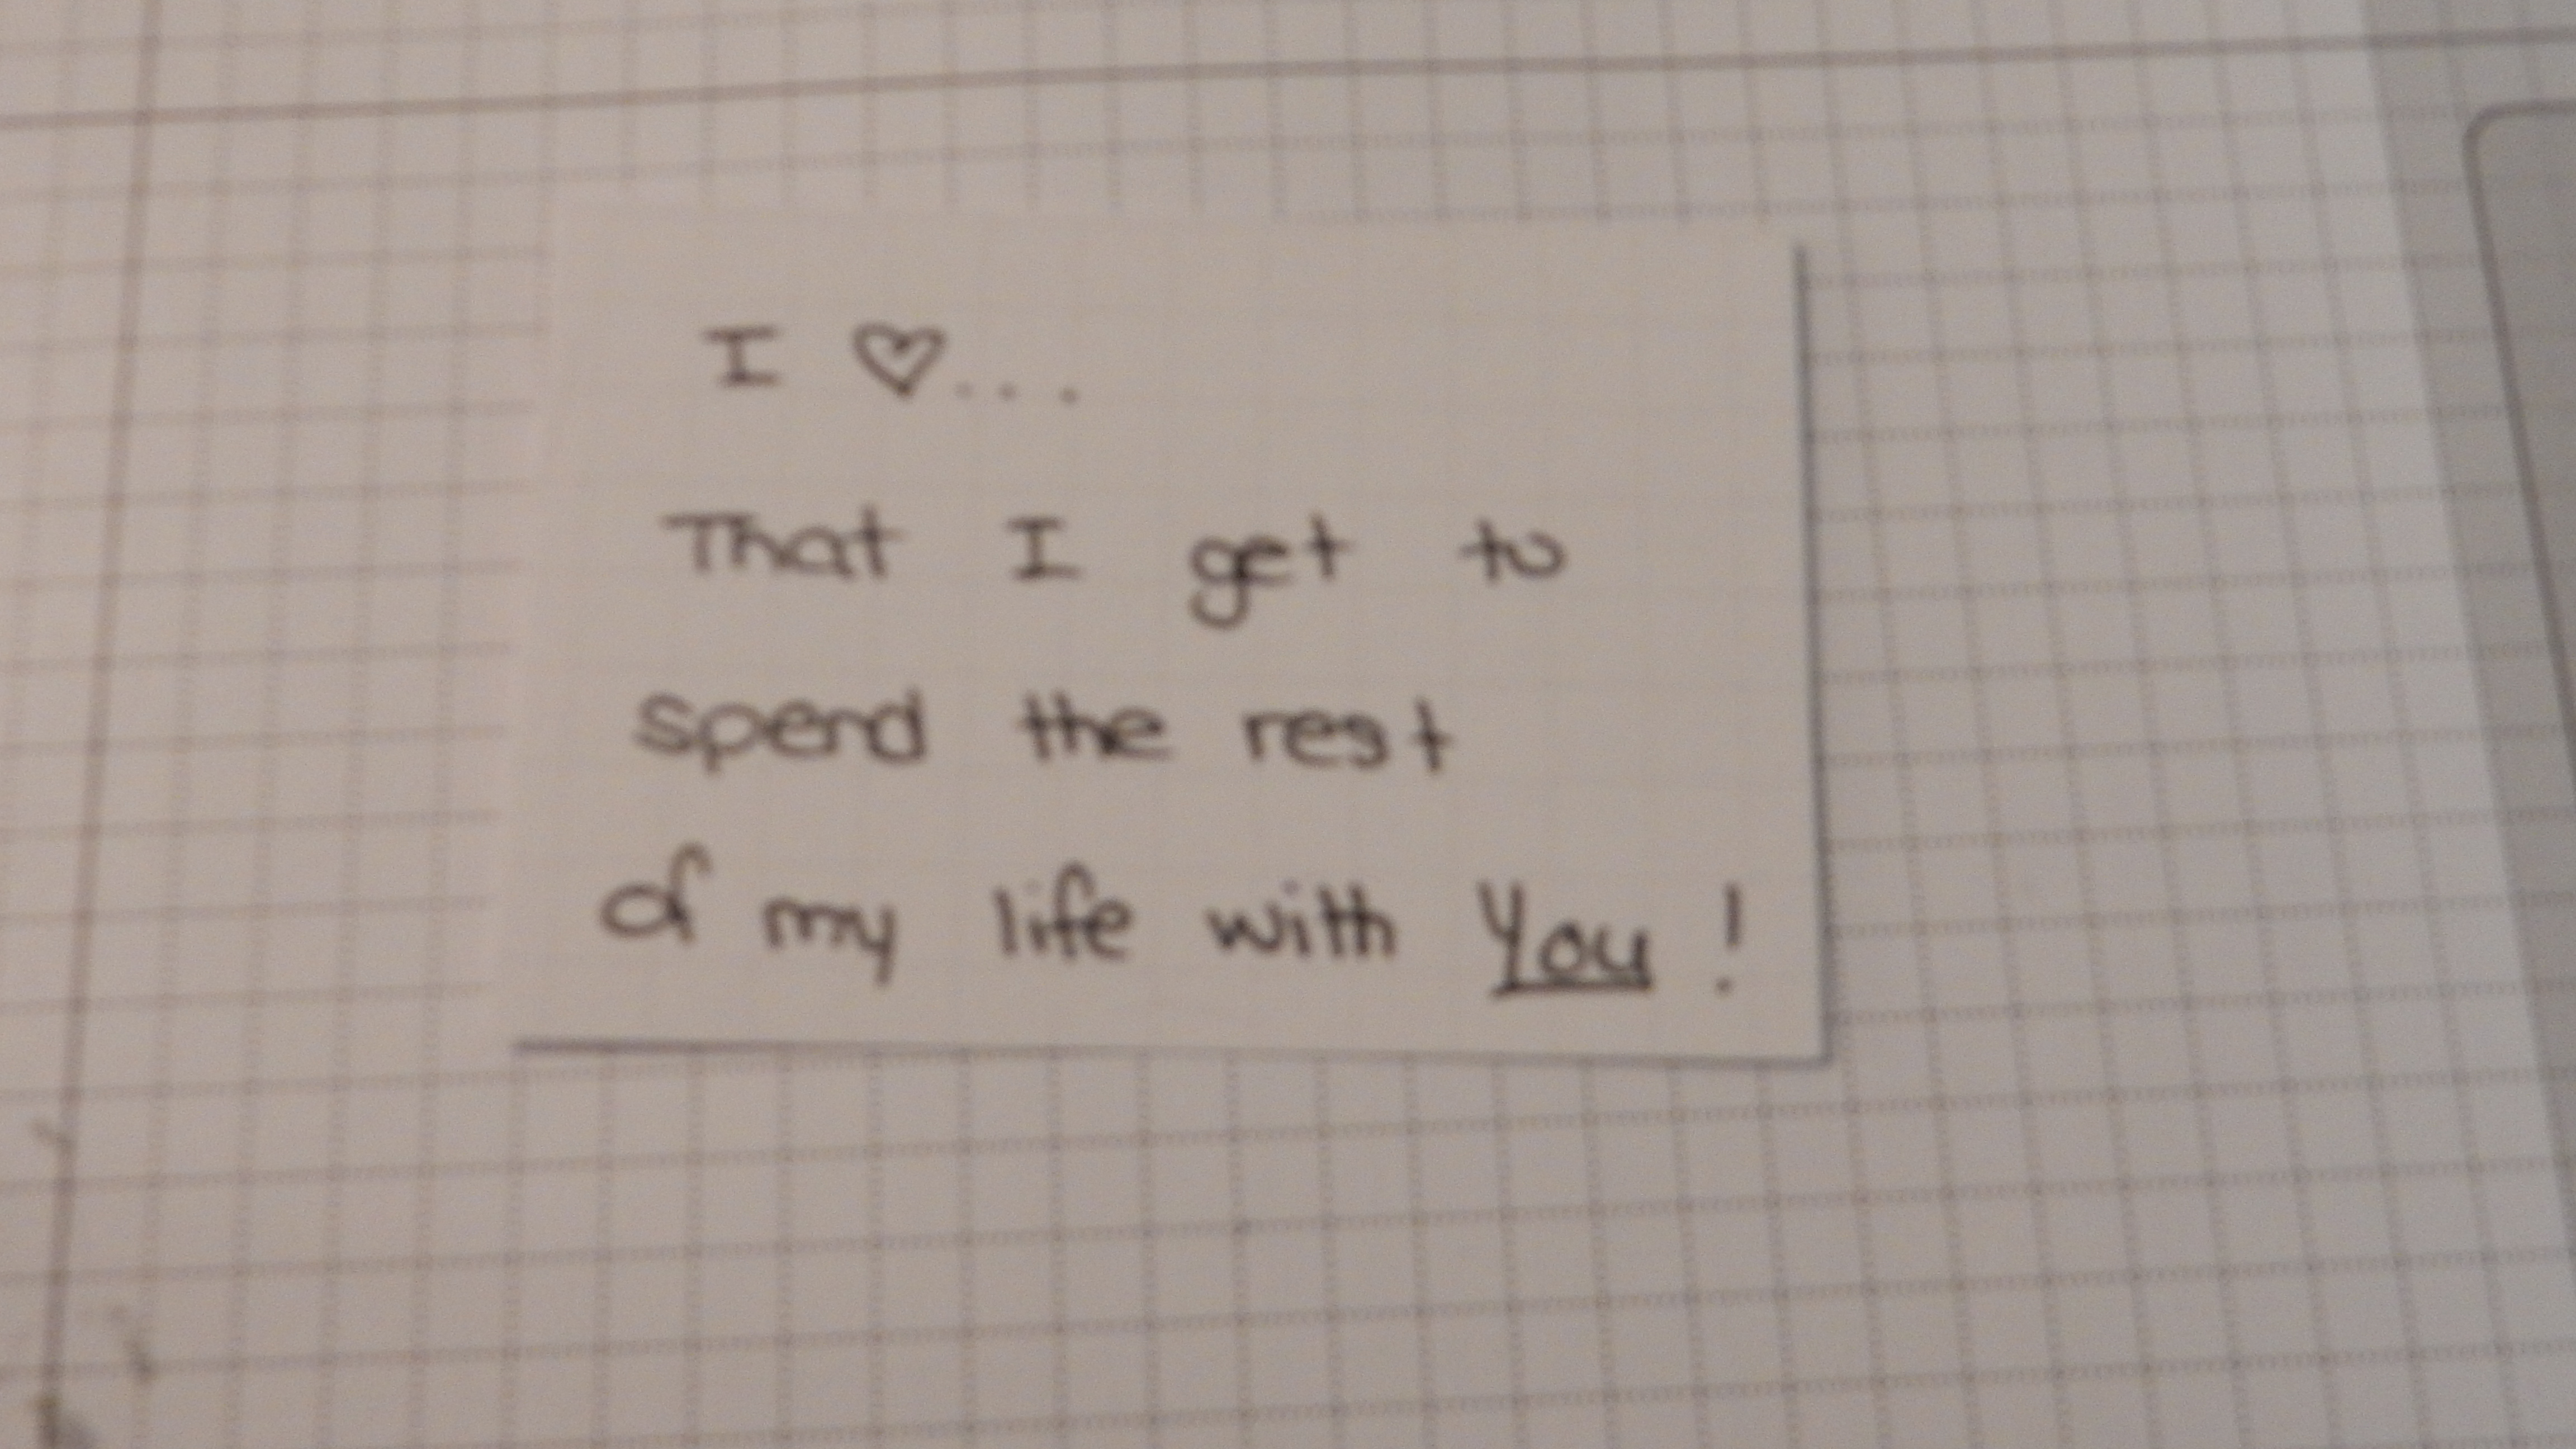 I ♡...
That I get to
spend the rest
of my life with you!